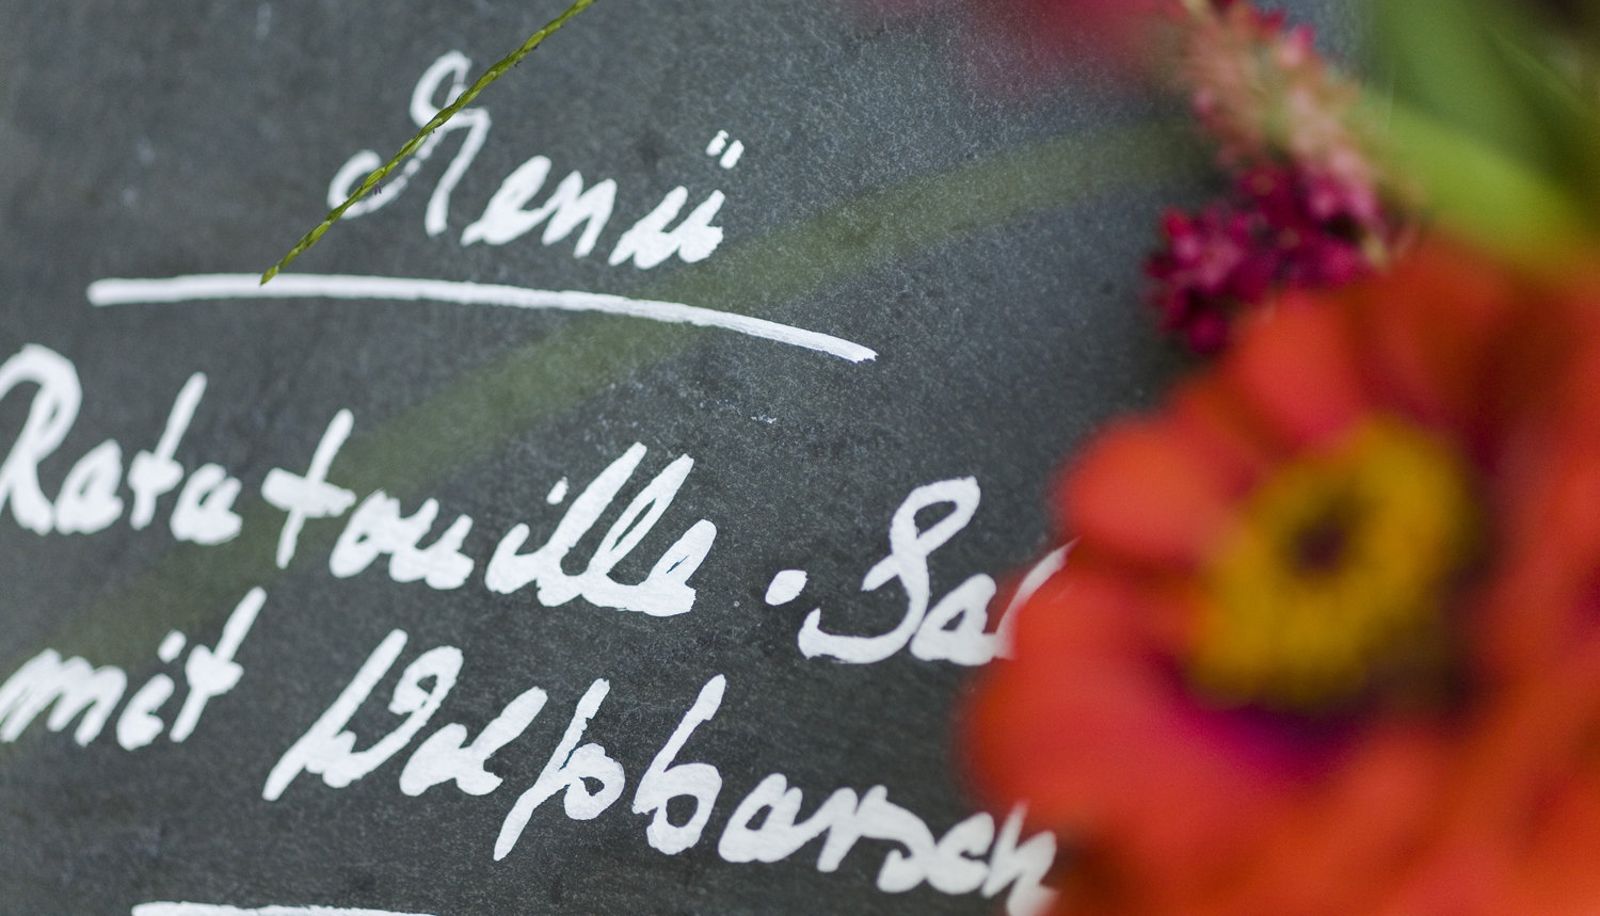 Menü
Ratatouille · Sal
mit Wolfsbarsch